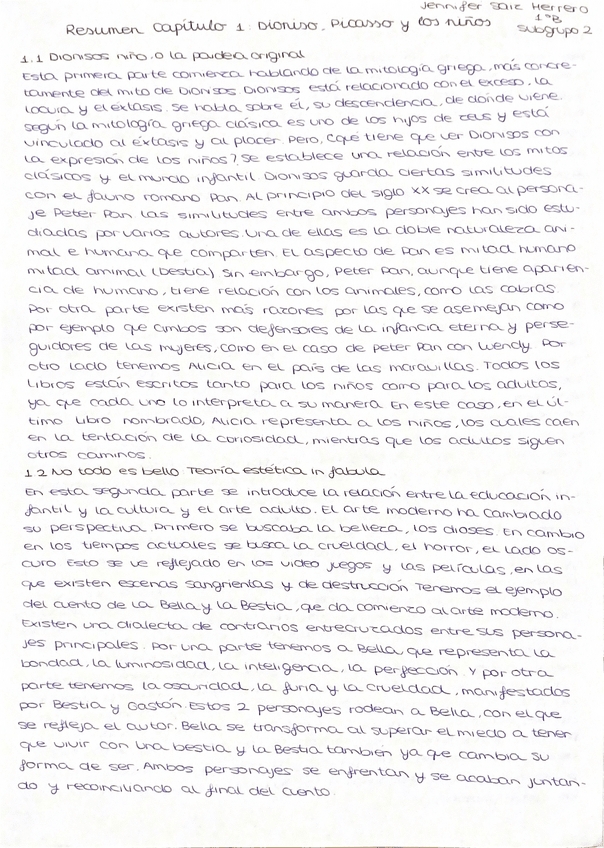 Jennifer Saiz Herrero
1ºB
Subgrupo 2
Resumen Capítulo 1: Dioniso, Picasso y los niños
1.1 Dionisos niño, o la paideia original
Esta primera parte comienza hablando de la mitología griega, más concre-
tamente del mito de Dionisos. Dionisos está relacionado con el exceso, la
locura y el éxtasis. Se habla sobre él, su descendencia, de dónde viene.
según la mitología griega clásica es uno de los hijos de Ceus y está
vinculado al éxtasis y al placer. Pero, ¿qué tiene que ver Dionisos con
la expresión de los niños? Se establece una relación entre los mitos
clásicos y el mundo infantil. Dionisos guarda ciertas similitudes
con el fauno romano Pan. Al principio del siglo XX se crea al persona-
je Peter Pan. Las similitudes entre ambos personajes han sido estu-
diadas por varios autores. Una de ellas es la doble naturaleza ani-
mal e humana que comparten. El aspecto de Pan es mitad humano
mitad amimal (bestia). Sin embargo, Peter Pan, aunque tiene aparien-
cia de humano, tiene relación con los animales, como las cabras.
Por otra parte existen más razones por las que se asemejan como
por ejemplo que ambos son defensores de la infancia eterna y perse-
guidores de las mujeres, como en el caso de Peter Pan con Wendy. Por
otro lado tenemos Alicia en el país de las maravillas. Todos los
libros están escritos tanto para los niños como para los adultos,
ya que cada uno lo interpreta a su manera. En este caso, en el úl-
timo libro nombrado, Alicia representa a los niños, los cuales caen
en la tentación de la curiosidad, mientras que los adultos siguen
otros caminos.
1.2 No todo es bello: Teoría estética in fabula
En esta segunda parte se introduce la relación entre la educación in-
fantil y la cultura y el arte adulto. El arte moderno ha cambiado
su perspectiva. Primero se buscaba la belleza, los dioses. En cambio
en los tiempos actuales se busca la crueldad, el horror, el lado os-
curo. Esto se ve reflejado en los video juegos y las películas, en las
que existen escenas sangrientas y de destrucción. Tenemos el ejemplo
del cuento de la Bella y la Bestia, que da comienzo al arte moderno.
Existen una dialecta de contrarios entrecruzados entre sus persona-
jes principales. Por una parte tenemos a Bella, que representa la
bondad, la luminosidad, la inteligencia, la perfección. Y por otra
parte tenemos la oscuridad, la furia y la crueldad, manifestados
por Bestia y Gastón. Estos 2 personajes rodean a Bella, con el que
se refleja el autor. Bella se transforma al superar el miedo a tener
que vivir con una bestia y la Bestia también ya que cambia su
forma de ser. Ambos personajes se enfrentan y se acaban juntan-
do y reconciliando al final del cuento.